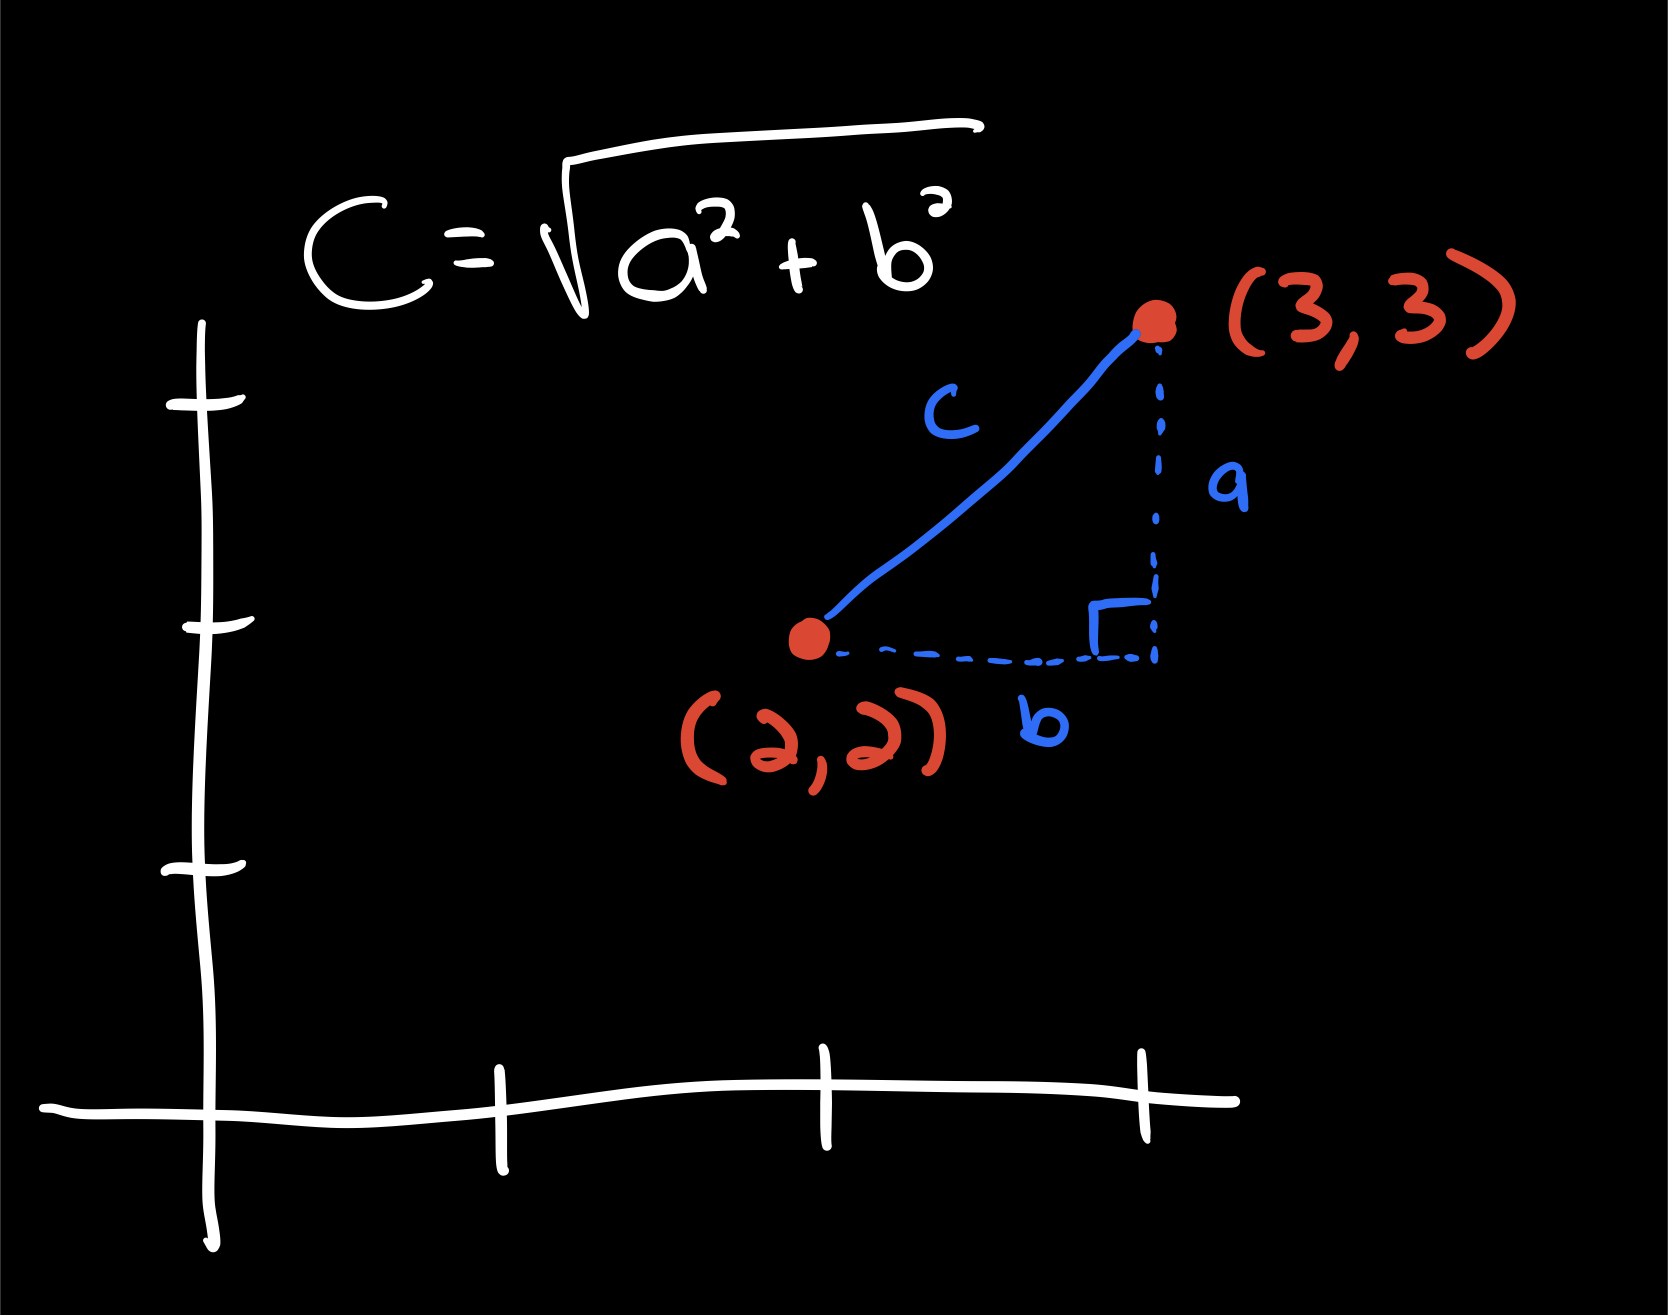 C = √a² + b²
(3, 3)
c
a
(2, 2)
b